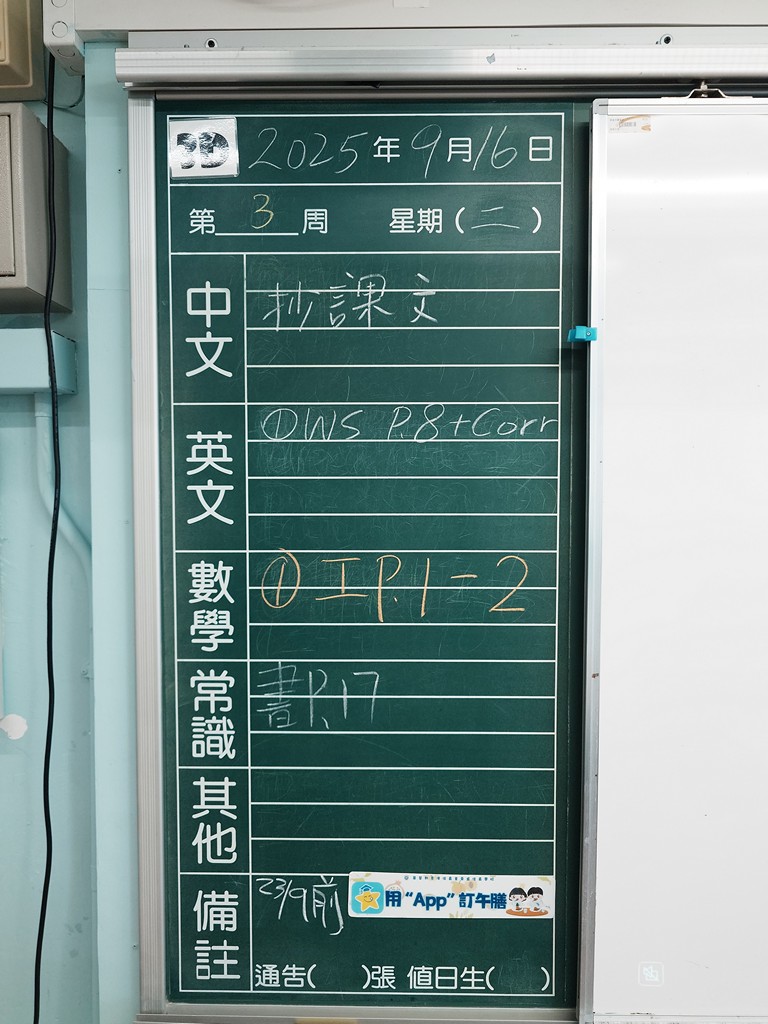 3D 2025年9月16日
第3周 星期(二)
中文 抄課文
英文 ①WS P.8+Corr
數學 ①工P.1-2
常識 書P.17
其他
備註 23/9前 用“App”訂午膳
通告( )張 值日生( )